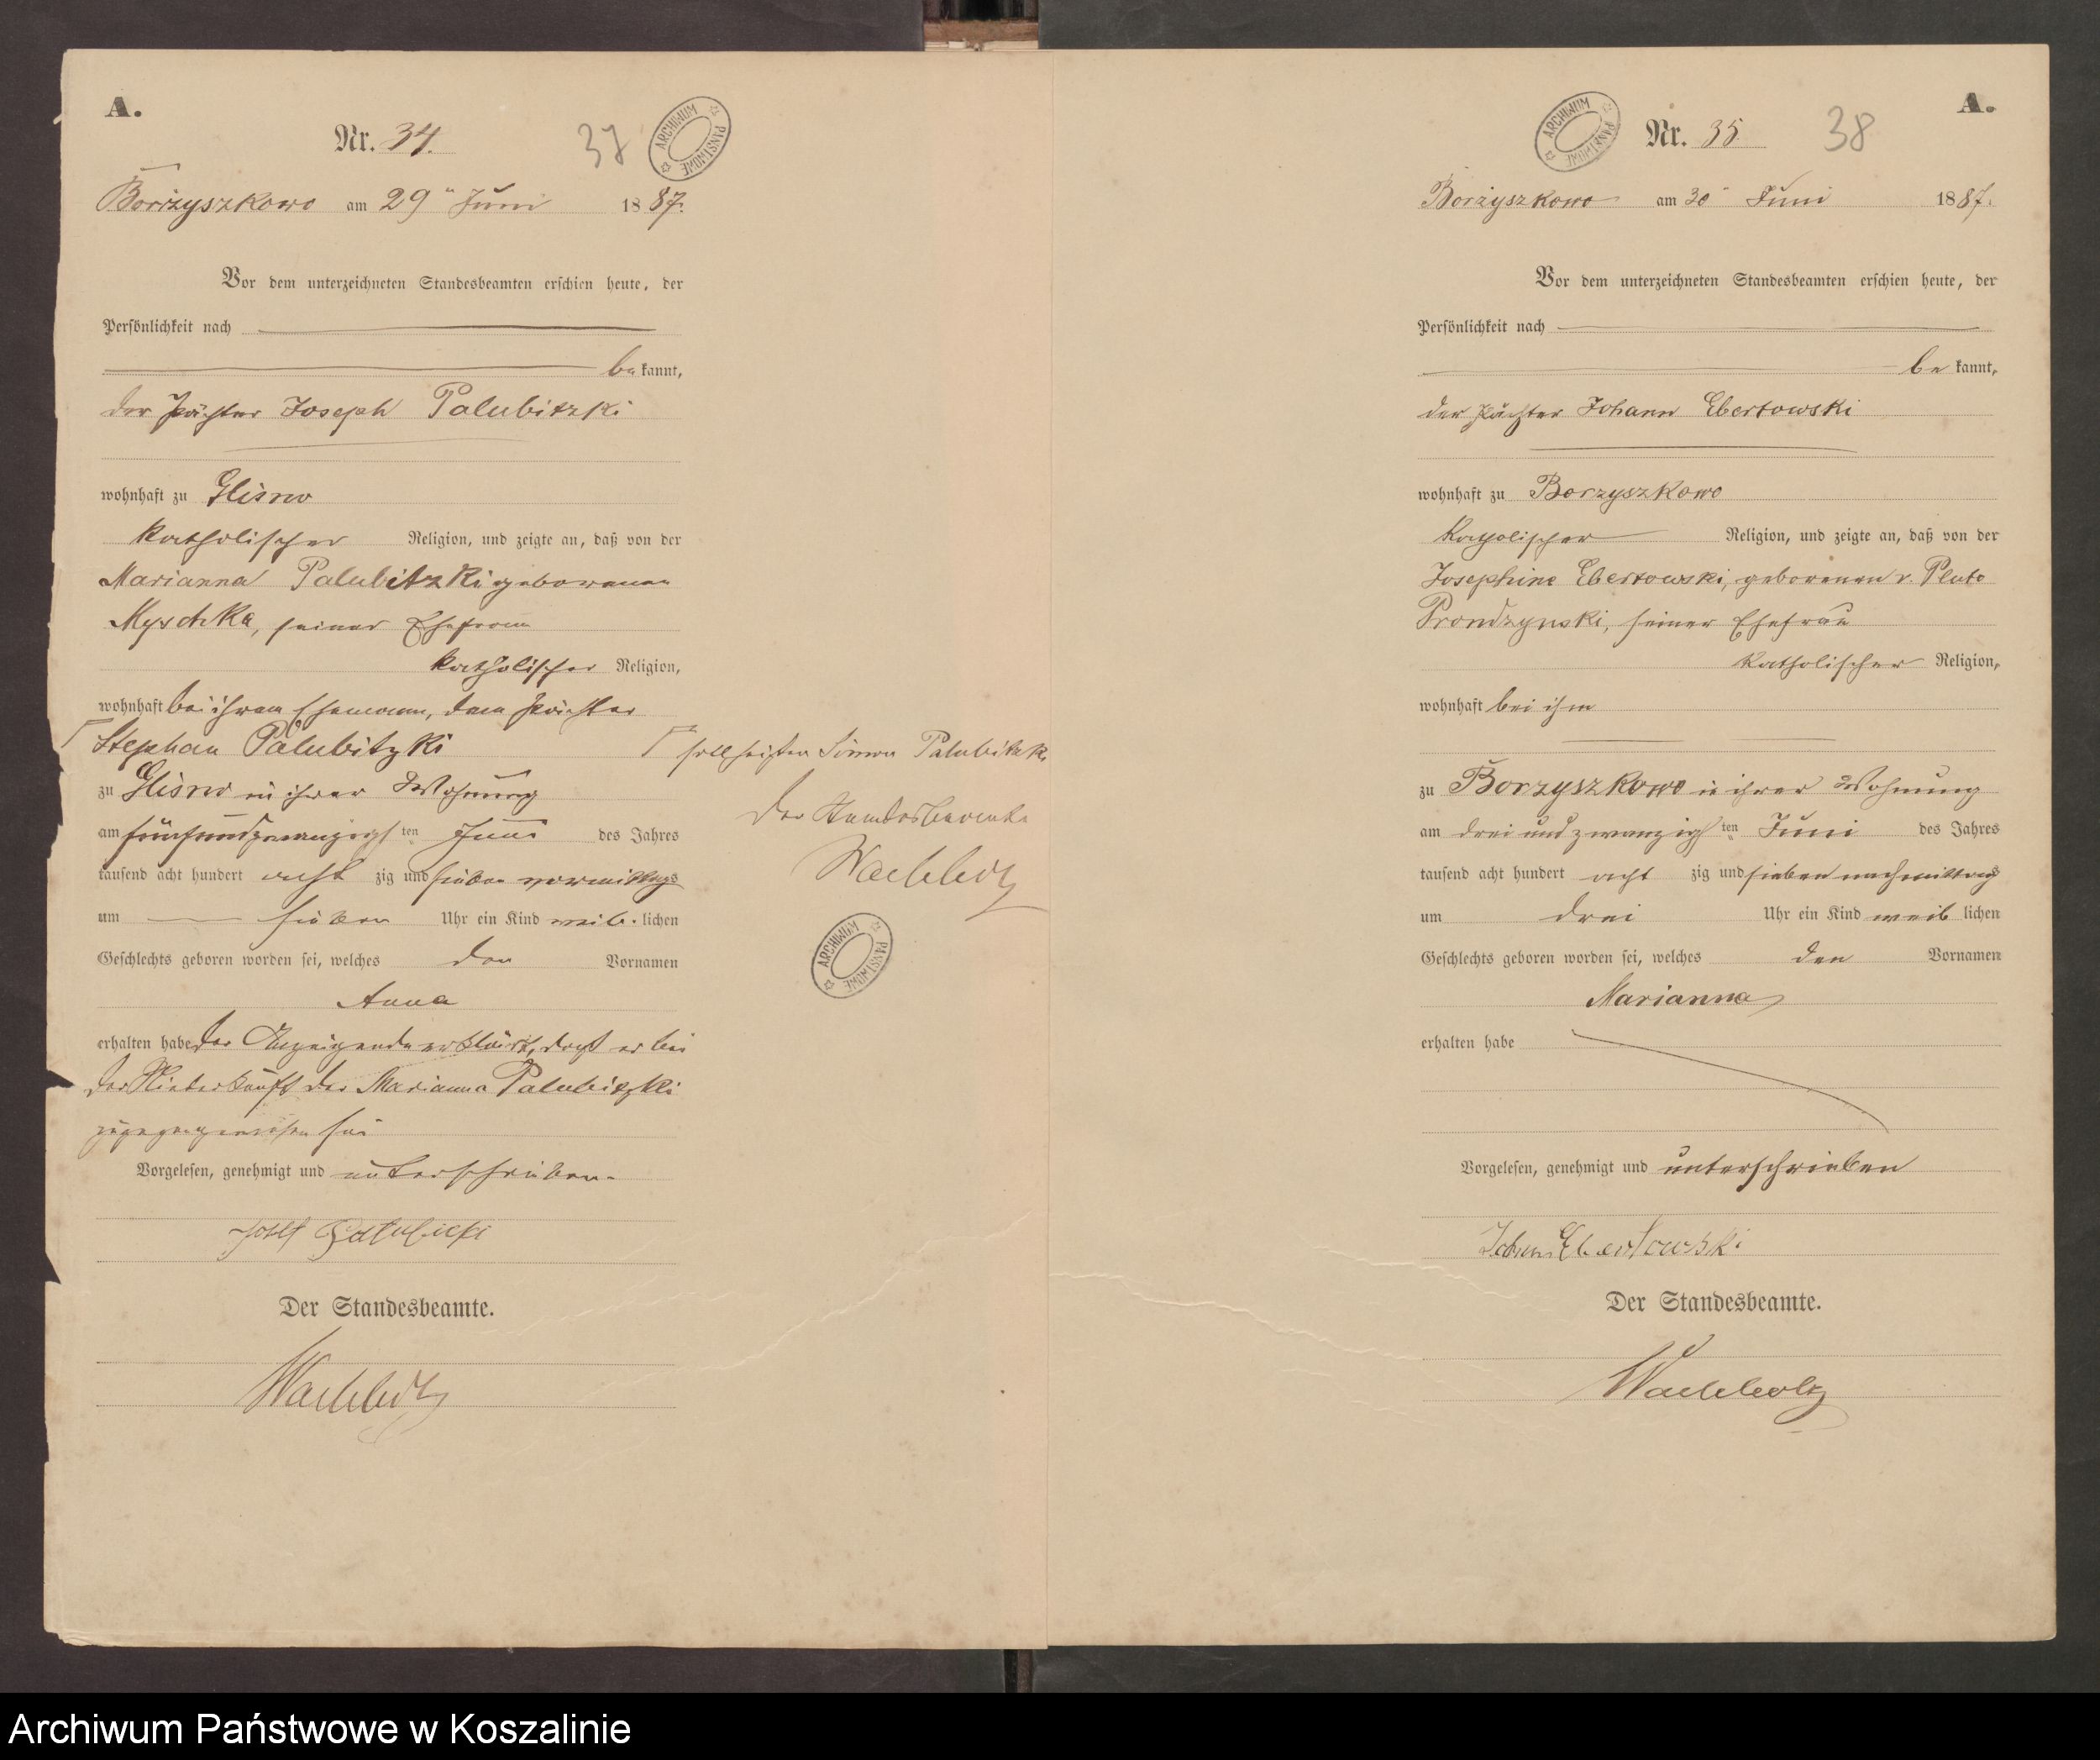 A.
Nr. 34.
37
ARCHIWUM PAŃSTWOWE
Borzyszkowo am 29ⁿ Juni 1887.
Vor dem unterzeichneten Standesbeamten erschien heute, der
Persönlichkeit nach
be kannt,
der Pächter Joseph Palubitzki
wohnhaft zu Glisno
katholischer Religion, und zeigte an, daß von der
Marianna Palubitzki geborenen
Myschka, seiner Ehefrau
katholischer Religion,
wohnhaft bei ihrem Ehemann, dem Pächter
Stephan Palubitzki
zu Glisno in ihrer Wohnung
am fünfundzwanzigsten Juni des Jahres
tausend acht hundert acht zig und sieben vormittags
um sieben Uhr ein Kind weib. lichen
Geschlechts geboren worden sei, welches den Vornamen
Anna
erhalten habe der Anzeigende erklärt, daß er bei
der Niederkunft der Marianna Palubitzki
zugegengewesen sei
Vorgelesen, genehmigt und unterschrieben.
Josef Palubicki
Der Standesbeamte.
Wachholtz
soll heißen Simon Palubitzki
Der Standesbeamte
Wachholtz
ARCHIWUM PAŃSTWOWE
A.
ARCHIWUM PAŃSTWOWE
Nr. 35.
38
Borzyszkowo am 30 Juni 1887.
Vor dem unterzeichneten Standesbeamten erschien heute, der
Persönlichkeit nach
be kannt,
der Pächter Johann Ebertowski
wohnhaft zu Borzyszkowo
katholischer Religion, und zeigte an, daß von der
Josephine Ebertowski, geborenen v. Pluto
Prondzynski, seiner Ehefrau
katholischer Religion,
wohnhaft bei ihm
zu Borzyszkowo in ihrer Wohnung
am drei und zwanzigsten Juni des Jahres
tausend acht hundert acht zig und sieben nachmittags
um drei Uhr ein Kind weib lichen
Geschlechts geboren worden sei, welches den Vornamen
Marianna
erhalten habe
Vorgelesen, genehmigt und unterschrieben
Johann Ebertowski
Der Standesbeamte.
Wachholtz
Archiwum Państwowe w Koszalinie